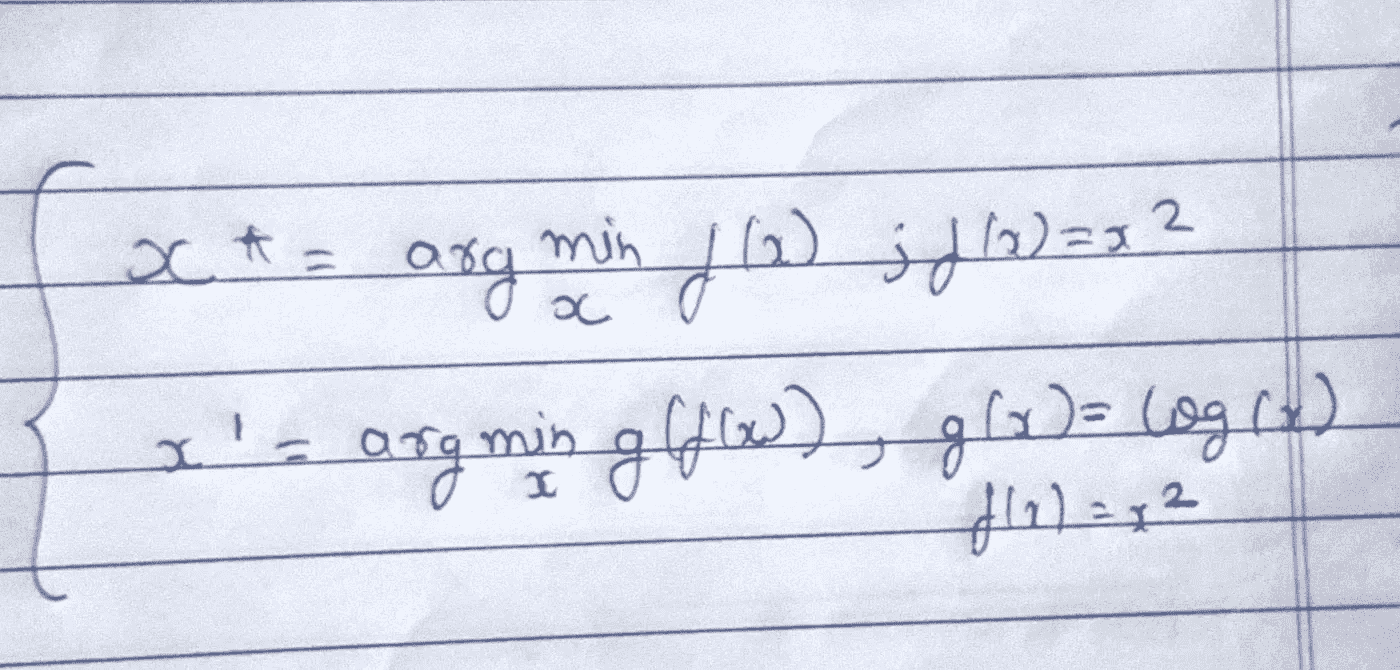 x* = arg min f(x) ; f(x) = x²
x
x' = arg min g(f(x)) , g(x) = log(x)
x
f(x) = x²